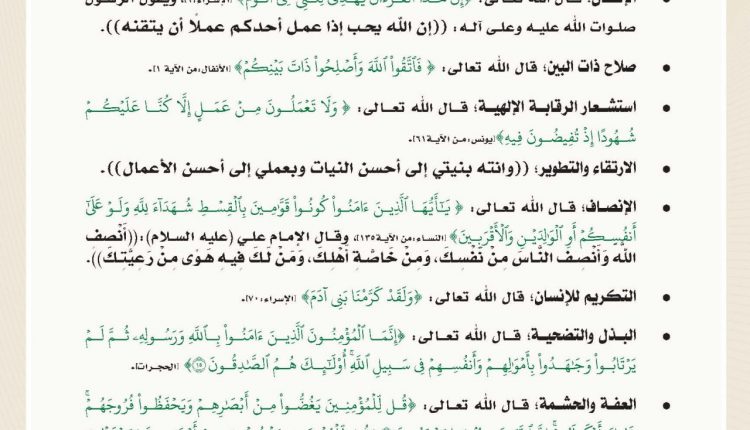 صلوات الله عليه وعلى آله: ((إن الله يحب إذا عمل أحدكم عملًا أن يتقنه)).
• صلاح ذات البين؛ قال الله تعالى: ﴿فَٱتَّقُواْ ٱللَّهَ وَأَصْلِحُواْ ذَاتَ بَيْنِكُمْ﴾[الأنفال:من الآية ١].
• استشعار الرقابة الإلهية؛ قال الله تعالى: ﴿وَلَا تَعْمَلُونَ مِنْ عَمَلٍ إِلَّا كُنَّا عَلَيْكُمْ
شُهُودًا إِذْ تُفِيضُونَ فِيهِ﴾[يونس:من الآية٦١].
• الارتقاء والتطوير؛ ((وانته بنيتي إلى أحسن النيات وبعملي إلى أحسن الأعمال)).
• الإنصاف؛ قال الله تعالى: ﴿يَٰٓأَيُّهَا ٱلَّذِينَ ءَامَنُواْ كُونُواْ قَوَّٰمِينَ بِٱلْقِسْطِ شُهَدَآءَ لِلَّهِ وَلَوْ عَلَىٰٓ
أَنفُسِكُمْ أَوِ ٱلْوَٰلِدَيْنِ وَٱلْأَقْرَبِينَ﴾[النساء:من الآية١٣٥]، وقال الإمام علي (عليه السلام): ((أَنْصِفِ
اللهَ وَأَنْصِفِ النَّاسَ مِنْ نَفْسِكَ، وَمِنْ خَاصَّةِ أَهْلِكَ، وَمَنْ لَكَ فِيهِ هَوًى مِنْ رَعِيَّتِكَ)).
• التكريم للإنسان؛ قال الله تعالى: ﴿وَلَقَدْ كَرَّمْنَا بَنِىٓ ءَادَمَ﴾[الإسراء:٧٠].
• البذل والتضحية؛ قال الله تعالى: ﴿إِنَّمَا ٱلْمُؤْمِنُونَ ٱلَّذِينَ ءَامَنُواْ بِٱللَّهِ وَرَسُولِهِۦ ثُمَّ لَمْ
يَرْتَابُواْ وَجَٰهَدُواْ بِأَمْوَٰلِهِمْ وَأَنفُسِهِمْ فِى سَبِيلِ ٱللَّهِ أُوْلَٰٓئِكَ هُمُ ٱلصَّٰدِقُونَ ١٥﴾[الحجرات].
• العفة والحشمة؛ قال الله تعالى: ﴿قُل لِّلْمُؤْمِنِينَ يَغُضُّواْ مِنْ أَبْصَٰرِهِمْ وَيَحْفَظُواْ فُرُوجَهُمْ